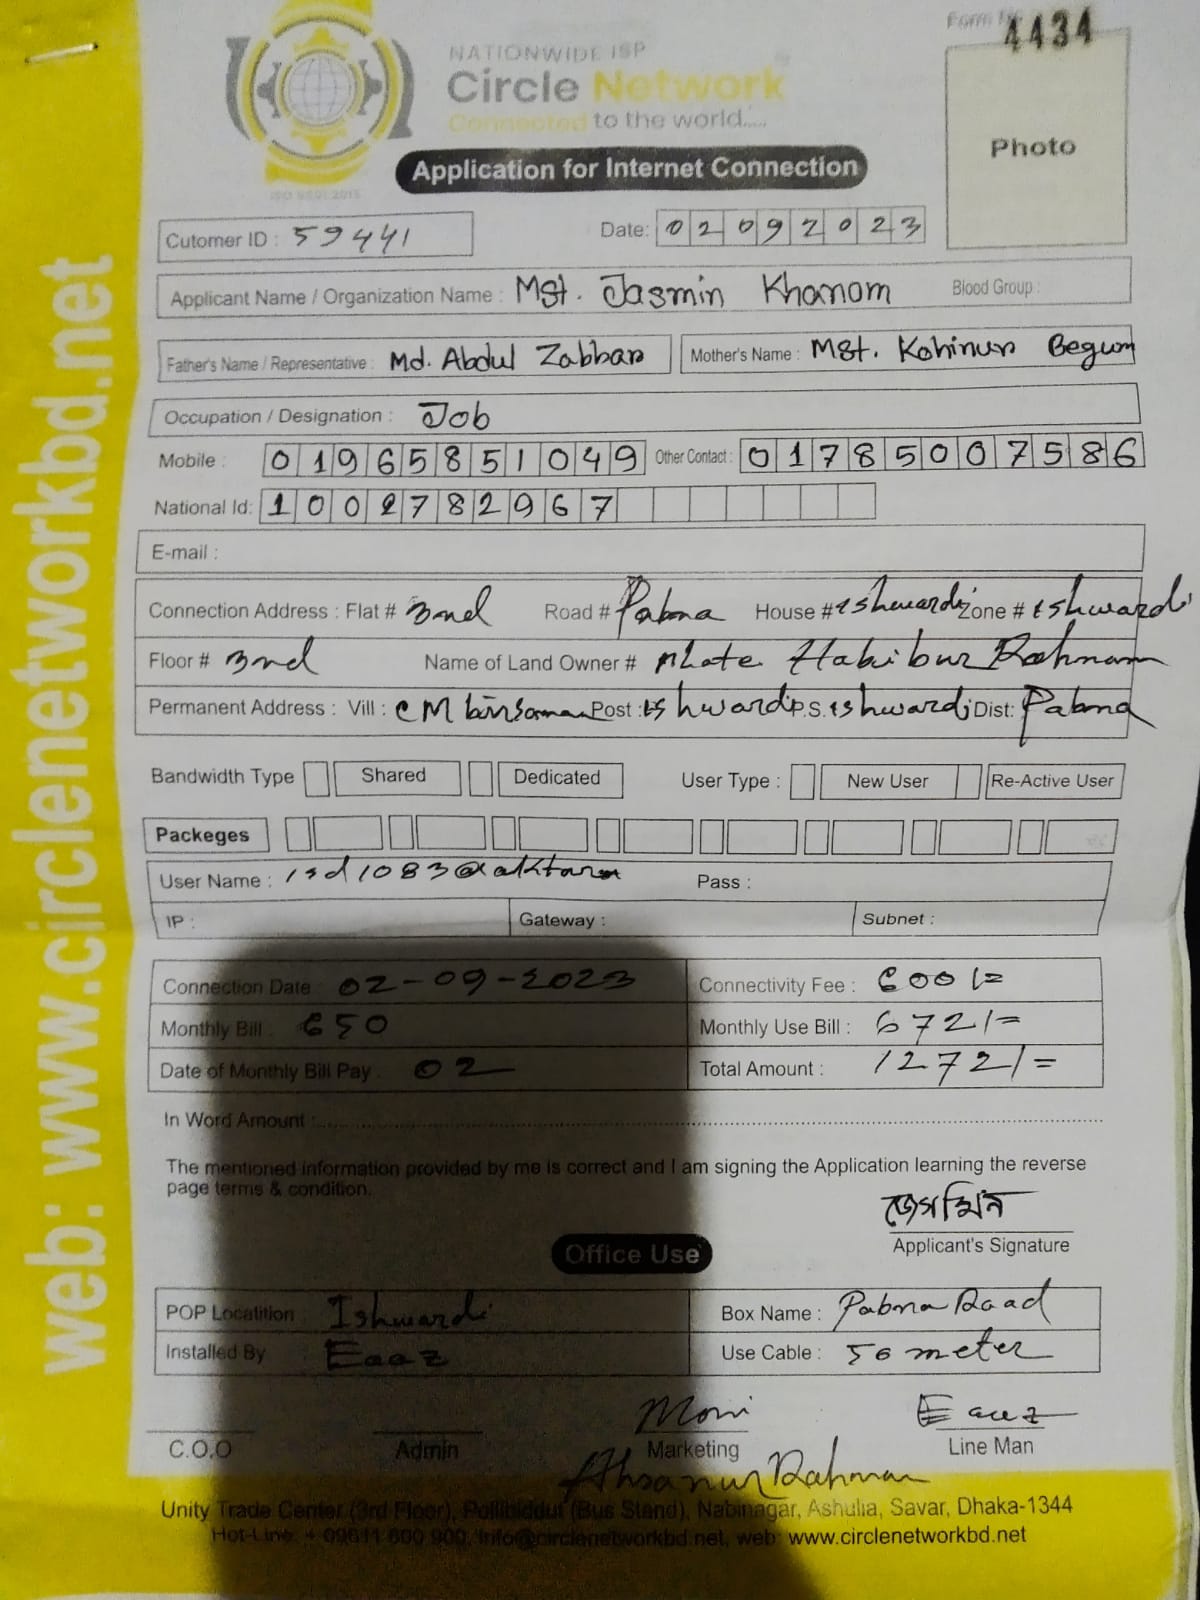 Form No
4434
NATIONWIDE ISP
Circle Network
Connected to the world.....
ISO 9001:2015
Photo
Application for Internet Connection
Cutomer ID : 59441 Date: 02092023
Applicant Name / Organization Name : Mst. Jasmin Khanom Blood Group :
Father's Name / Representative : Md. Abdul Zabbar Mother's Name : Mst. Kohinur Begum
Occupation / Designation : Job
Mobile : 01965851049 Other Contact : 01785007586
National Id: 1002782967
E-mail :
Connection Address : Flat # 3nd Road # Pabna House # Ishwardi Zone # Ishwardi
Floor # 3nd Name of Land Owner # Late Habibur Rahman
Permanent Address : Vill : Post : Ishwardi P.S. Ishwardi Dist: Pabna
Bandwidth Type Shared Dedicated User Type : New User Re-Active User
Packeges
User Name : isd1083@aktar Pass :
IP : Gateway : Subnet :
Connection Date : 02-09-2023 Connectivity Fee : 600/=
Monthly Bill : 650 Monthly Use Bill : 672/=
Date of Monthly Bill Pay : 02 Total Amount : 1272/=
In Word Amount :
The mentioned information provided by me is correct and I am signing the Application learning the reverse
page terms & condition.
জেসমিন
Applicant's Signature
Office Use
POP Locatition : Ishwardi Box Name : Pabna Road
Installed By Eaaz Use Cable : 50 meter
Moni Eaaz
C.O.O Admin Marketing Line Man
Ahsanur Rahman
Unity Trade Center (3rd Floor), Pollibiddut (Bus Stand), Nabinagar, Ashulia, Savar, Dhaka-1344
Hot-Line: + 09611 800 900, Info@circlenetworkbd.net, web: www.circlenetworkbd.net
web: www.circlenetworkbd.net